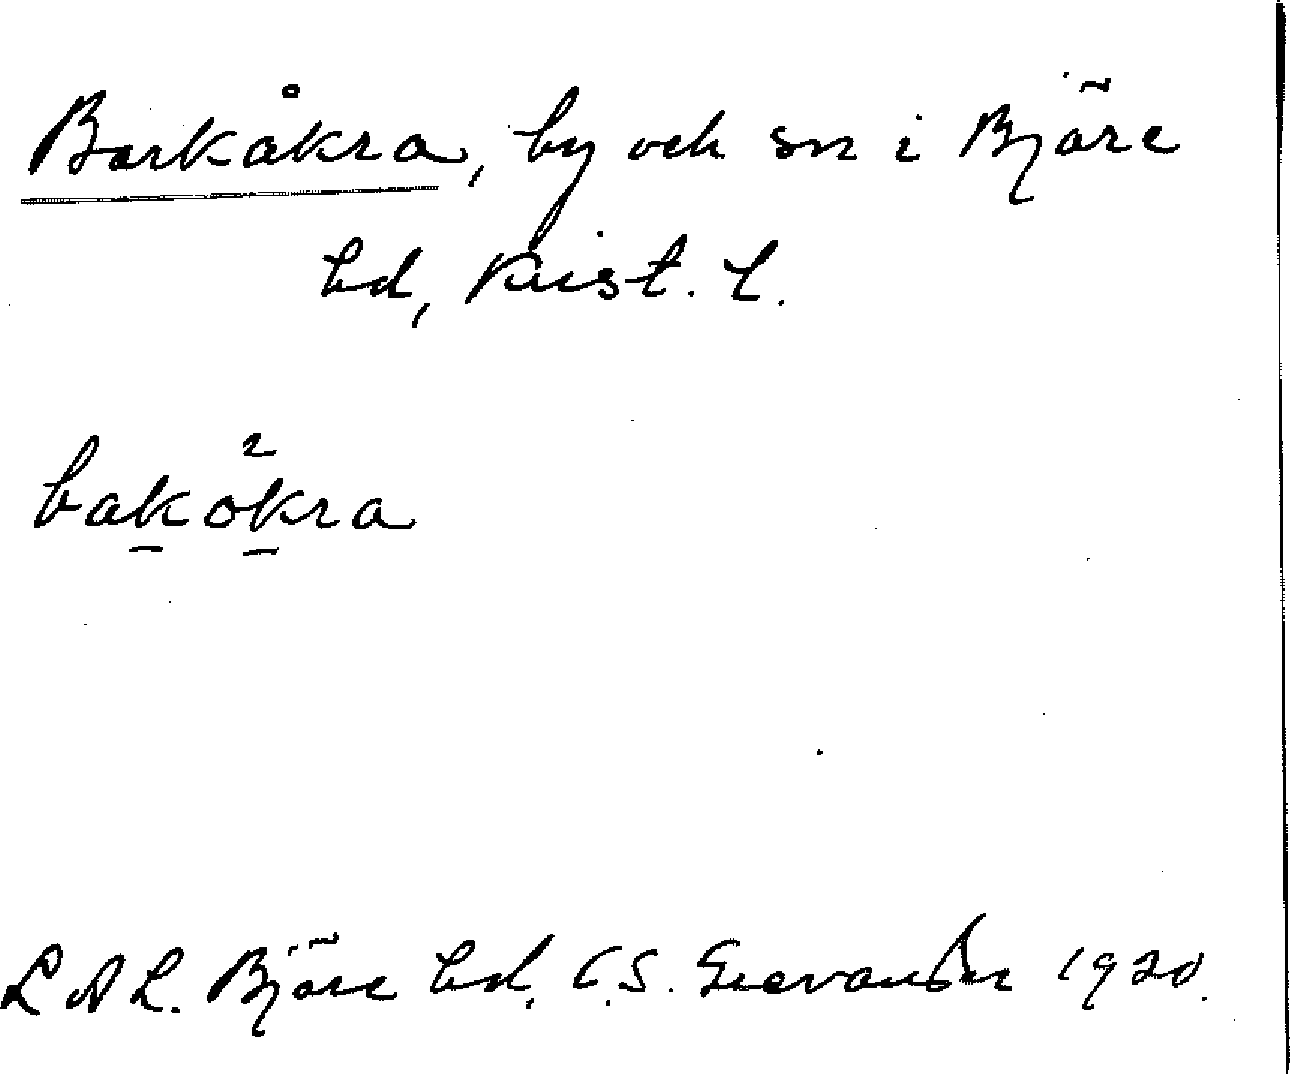 Barkåkra, by och sn i Bjäre
hd, Krist. l.
bakokra
L A L. Bjäre hd. C.S. 1920.